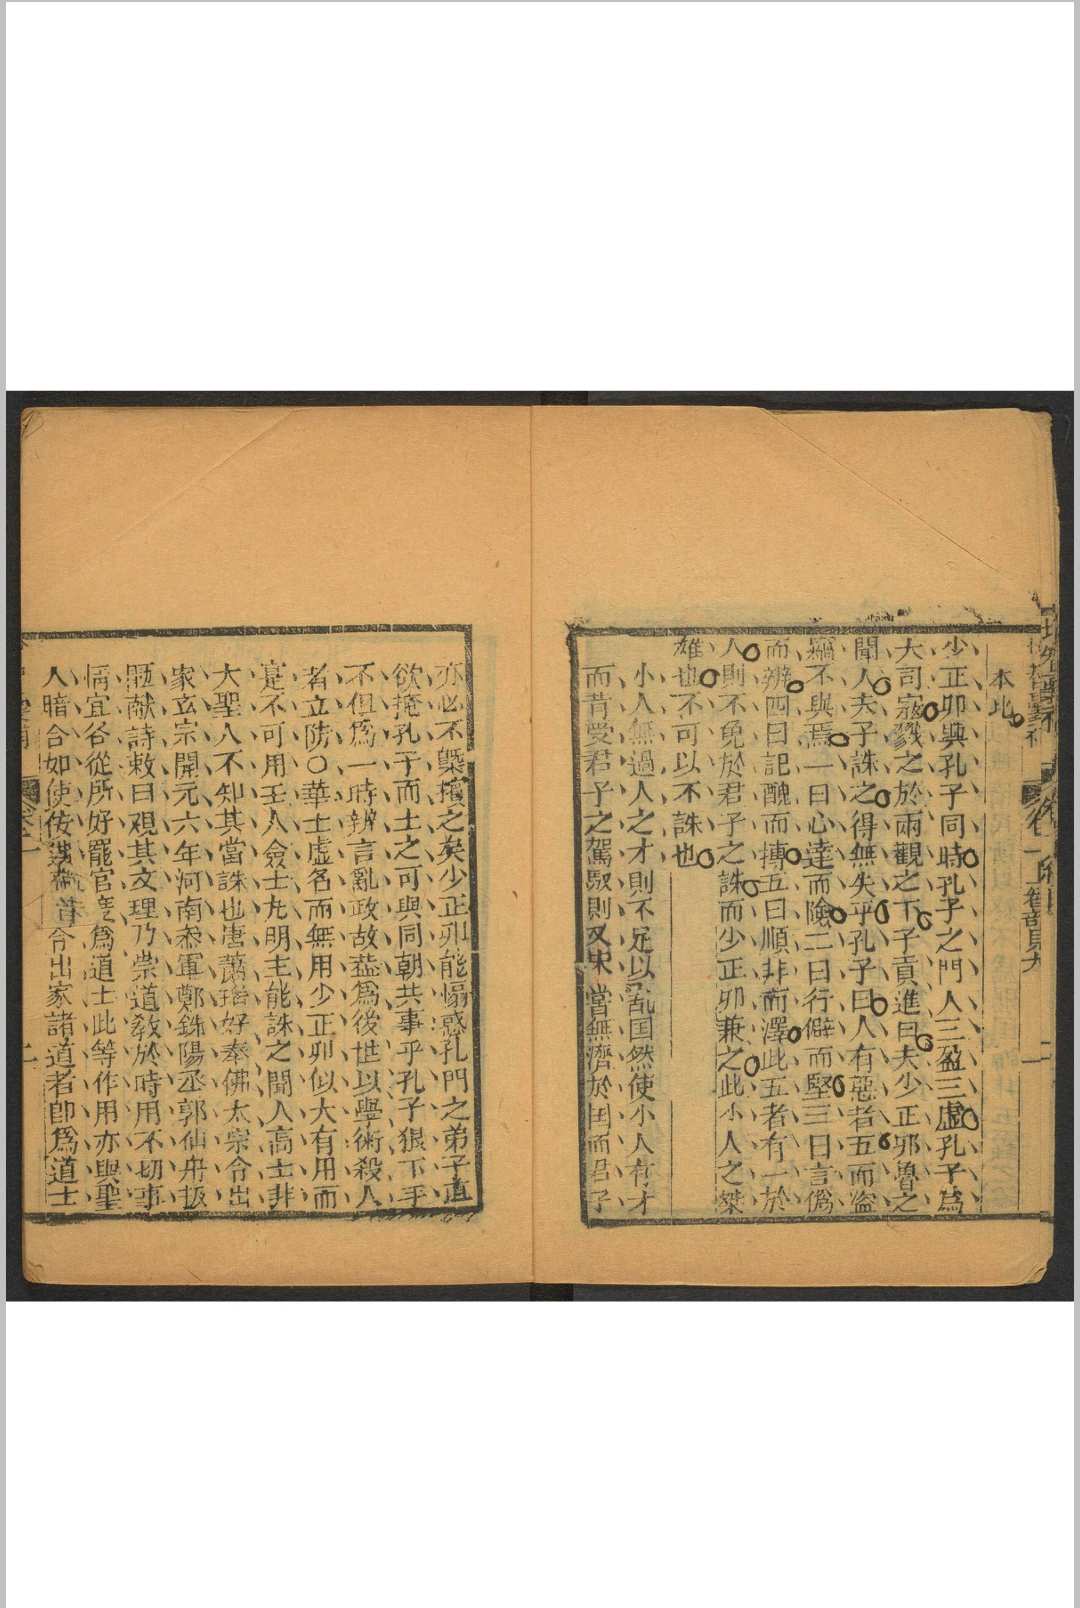 本此
少正卯與孔子同時孔子之門人三盈三虛孔子為
大司寇戮之於兩觀之下子貢進曰夫少正卯魯之
聞人夫子誅之得無失乎孔子曰人有惡者五而盜
竊不與焉一曰心達而險二曰行僻而堅三曰言僞
而辨四曰記醜而博五曰順非而澤此五者有一於
人則不免於君子之誅而少正卯兼之此小人之桀
雄也不可以不誅也
小人無過人之才則不足以乱国然使小人有才
而肯受君子之駕馭則又未嘗無濟於国而君子
亦必不槩擯之矣少正卯能惑孔門之弟子直
欲掩孔子而上之可與同朝共事乎孔子狠下手
不但為一時辨言亂政故葢為後世以學術殺人
者立防○華士虛名而無用少正卯似大有用而
寔不可用壬人僉士凢明主能誅之聞人高士非
大聖人不知其當誅也唐蕭瑀好奉佛太宗令出
家玄宗開元六年河南叅軍鄭銑陽丞郭仙舟投
匭献詩敕曰覌其文理乃崇道教於時用不切事
情宜各從所好罷官度為道士此等作用亦與聖
人暗合如使佞者令出家諸道者即為道士